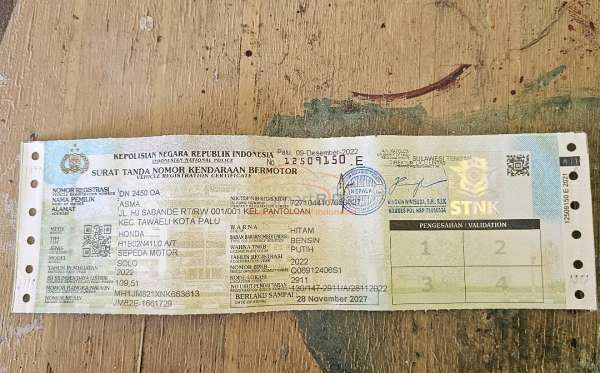 KEPOLISIAN NEGARA REPUBLIK INDONESIA
INDONESIAN NATIONAL POLICE
SURAT TANDA NOMOR KENDARAAN BERMOTOR
VEHICLE REGISTRATION CERTIFICATE
Palu, 09-Desember-2022
No. 12509150.E
SULAWESI TENGAH
KEPALA
NOMOR REGISTRASI DN 2450 OA
NAMA PEMILIK ASMA
ALAMAT JL. HJ SABANDE RT/RW 001/001 KEL PANTOLOAN
KEC TAWAELI KOTA PALU
HONDA
H1B02N41L0 A/T
SEPEDA MOTOR
SOLO
2022
109,51
MH1JM821XNK663613
NOMOR MESIN JM82E-1661729
WARNA HITAM
BENSIN
WARNA TNKB PUTIH
TAHUN REGISTRASI 2022
NOMOR BPKB Q06912406S1
2911
130/147-2911/A/28112022
BERLAKU SAMPAI 28 November 2027
STNK
PENGESAHAN / VALIDATION
1 2
3 4
12509150 E 2021